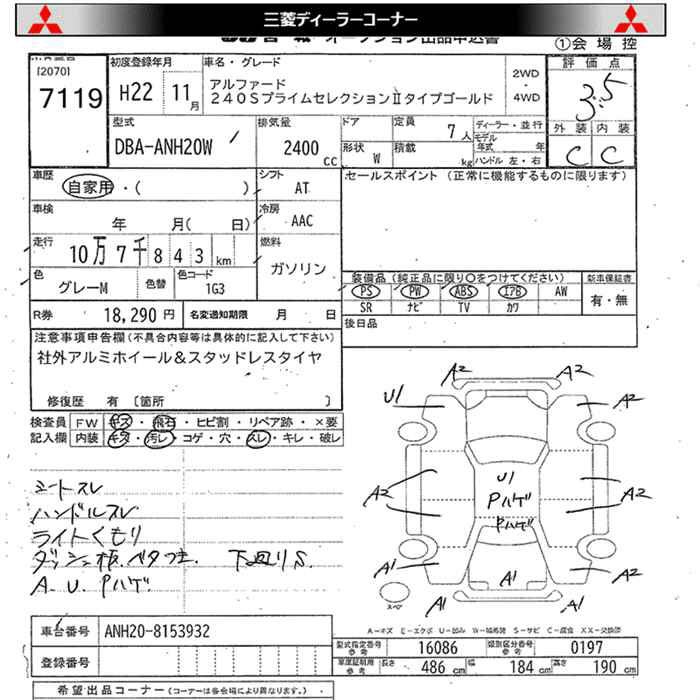 三菱ディーラーコーナー
オークション出品申込書
①会場控
[2070]
7119
初度登録年月
H22 11月
車名・グレード
アルファード
240SプライムセレクションⅡタイプゴールド
2WD
・
4WD
評価点
3.5
外装 内装
C C
型式
DBA-ANH20W
排気量
2400 cc
ドア
形状 W
定員 7人
積載 kg
ディーラー・並行
モデル年式 年
ハンドル 左・右
車歴
自家用・( )
シフト
AT
セールスポイント (正常に機能するものに限ります)
車検
年 月( 日)
冷房
AAC
走行
10万7千843km
燃料
ガソリン
色
グレーM
色替
色コード
1G3
装備品 (純正品に限り○をつけてください)
PS PW ABS エアB AW
SR ナビ TV カワ
新車保証書
有・無
R券 18,290円
名変通知期限 月 日
後日品
注意事項申告欄(不具合内容等は具体的に記入して下さい)
社外アルミホイール&スタッドレスタイヤ
修復歴 有 〔箇所 〕
検査員記入欄
FW キズ・飛石・ヒビ割・リペア跡・×要
内装 キズ・汚レ・コゲ・穴・スレ・キレ・破レ
シートスレ
ハンドルスレ
ライトくもり
ダッシュ板ベタつき. 下廻りS.
A. U. Pハゲ
A2 A2
U1 A2
U1
Pハゲ
Pハゲ
A2 A2
A1 A1 A2
A1 A1
スペア
A-キズ E-エクボ U-凹み W-補修跡 S-サビ C-腐食 XX-交換済
車台番号 ANH20-8153932
登録番号
型式指定番号参考 16086
類別区分番号参考 0197
車庫証明用参考 長さ 486cm 幅 184cm 高さ 190cm
希望出品コーナー(コーナーは各会場により異なります。)